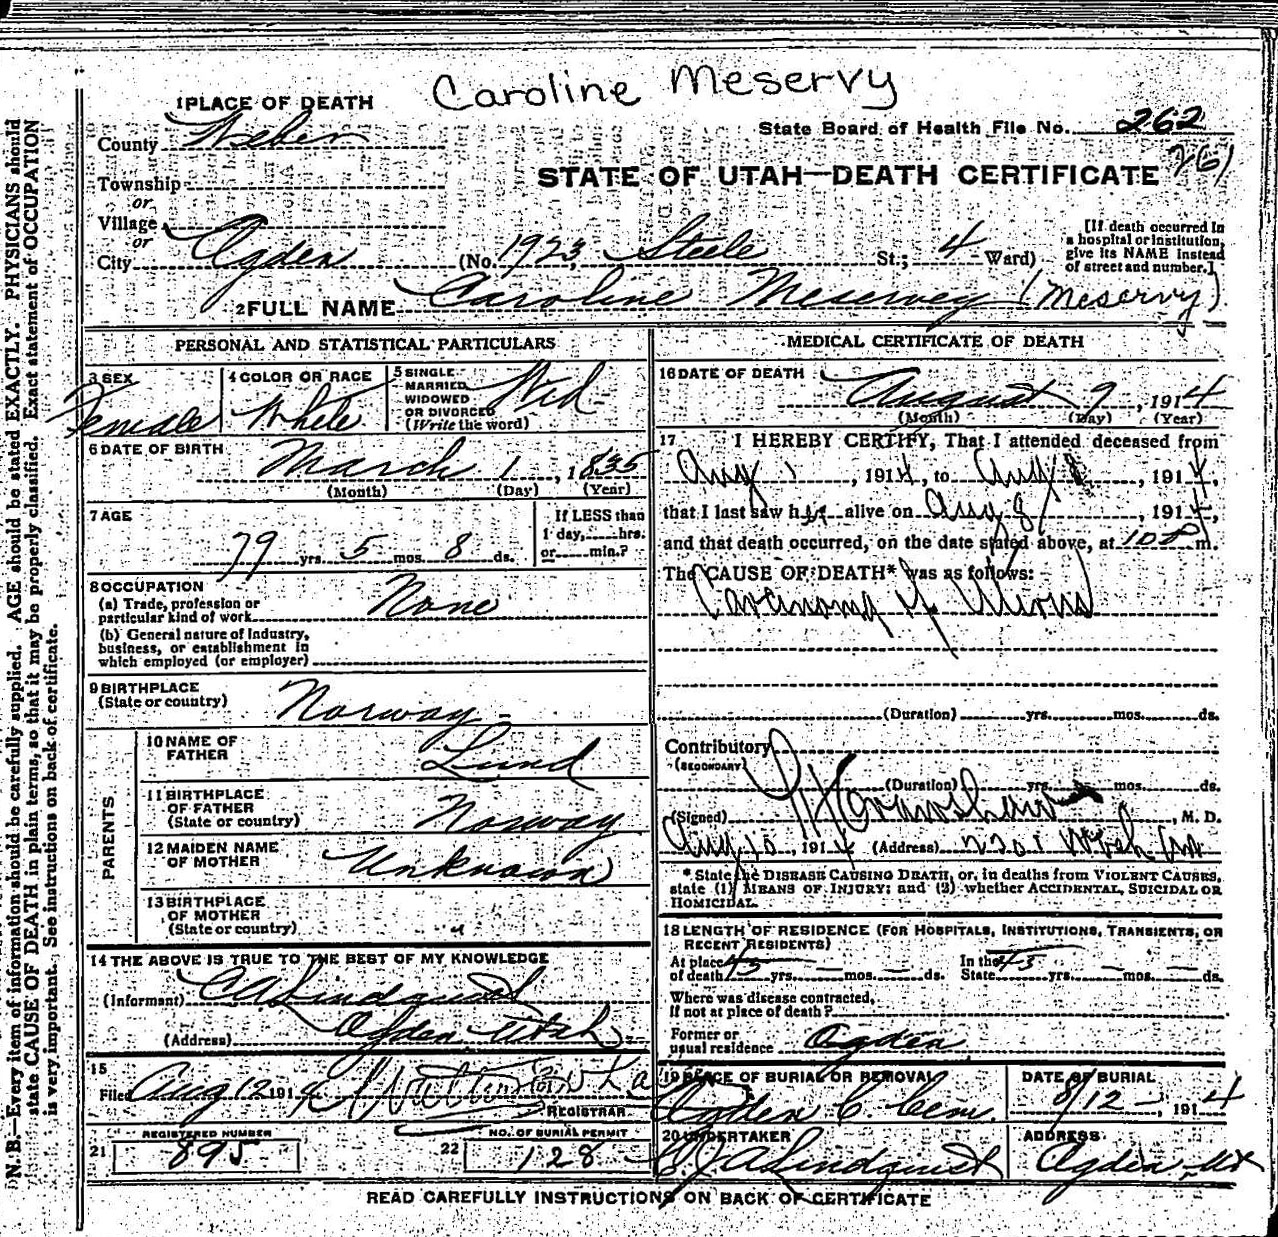 Caroline Meservy
1 PLACE OF DEATH
State Board of Health File No. 262
261
County Weber
STATE OF UTAH—DEATH CERTIFICATE
Township
or
Village
or
City Ogden (No. 1923, Steele St.; 4 Ward)
[If death occurred in
a hospital or institution,
give its NAME instead
of street and number.]
2 FULL NAME Caroline Meservey (Meservy)
PERSONAL AND STATISTICAL PARTICULARS
3 SEX
Female
4 COLOR OR RACE
White
5 SINGLE
MARRIED
WIDOWED
OR DIVORCED
(Write the word)
Wid
6 DATE OF BIRTH
March 1, 1835
(Month) (Day) (Year)
7 AGE
79 yrs. 5 mos. 8 ds.
If LESS than
1 day, hrs.
or min.?
8 OCCUPATION
(a) Trade, profession or
particular kind of work None
(b) General nature of Industry,
business, or establishment in
which employed (or employer)
9 BIRTHPLACE
(State or country) Norway
PARENTS
10 NAME OF
FATHER Lund
11 BIRTHPLACE
OF FATHER
(State or country) Norway
12 MAIDEN NAME
OF MOTHER Unknown
13 BIRTHPLACE
OF MOTHER
(State or country) "
14 THE ABOVE IS TRUE TO THE BEST OF MY KNOWLEDGE
(Informant) C A Lindquist
(Address) Ogden Utah
15
Filed Aug 12 1914
REGISTRAR
REGISTERED NUMBER
21 895
NO. OF BURIAL PERMIT
22 128
MEDICAL CERTIFICATE OF DEATH
16 DATE OF DEATH
August 9, 1914
(Month) (Day) (Year)
17 I HEREBY CERTIFY, That I attended deceased from
Aug 1, 1914, to Aug 8, 1914,
that I last saw her alive on Aug 8, 1914,
and that death occurred, on the date stated above, at 10 m.
The CAUSE OF DEATH* was as follows:
Carcinoma of Uterus
(Duration) yrs. mos. ds.
Contributory
(SECONDARY)
(Duration) yrs. mos. ds.
(Signed) , M. D.
Aug 10, 1914 (Address) 2301 Wash Av
* State the DISEASE CAUSING DEATH, or, in deaths from VIOLENT CAUSES,
state (1) MEANS OF INJURY; and (2) whether ACCIDENTAL, SUICIDAL OR
HOMICIDAL.
18 LENGTH OF RESIDENCE (FOR HOSPITALS, INSTITUTIONS, TRANSIENTS, OR
RECENT RESIDENTS)
At place
of death 45 yrs. — mos. — ds.
In the
State 45 yrs. — mos. — ds.
Where was disease contracted,
if not at place of death?
Former or
usual residence Ogden
19 PLACE OF BURIAL OR REMOVAL
Ogden C. Cem.
DATE OF BURIAL
8/12, 1914
20 UNDERTAKER
Lindquist
ADDRESS
Ogden, Ut
READ CAREFULLY INSTRUCTIONS ON BACK OF CERTIFICATE
N. B.—Every item of information should be carefully supplied. AGE should be stated EXACTLY. PHYSICIANS should
state CAUSE OF DEATH in plain terms, so that it may be properly classified. Exact statement of OCCUPATION
is very important. See instructions on back of certificate.